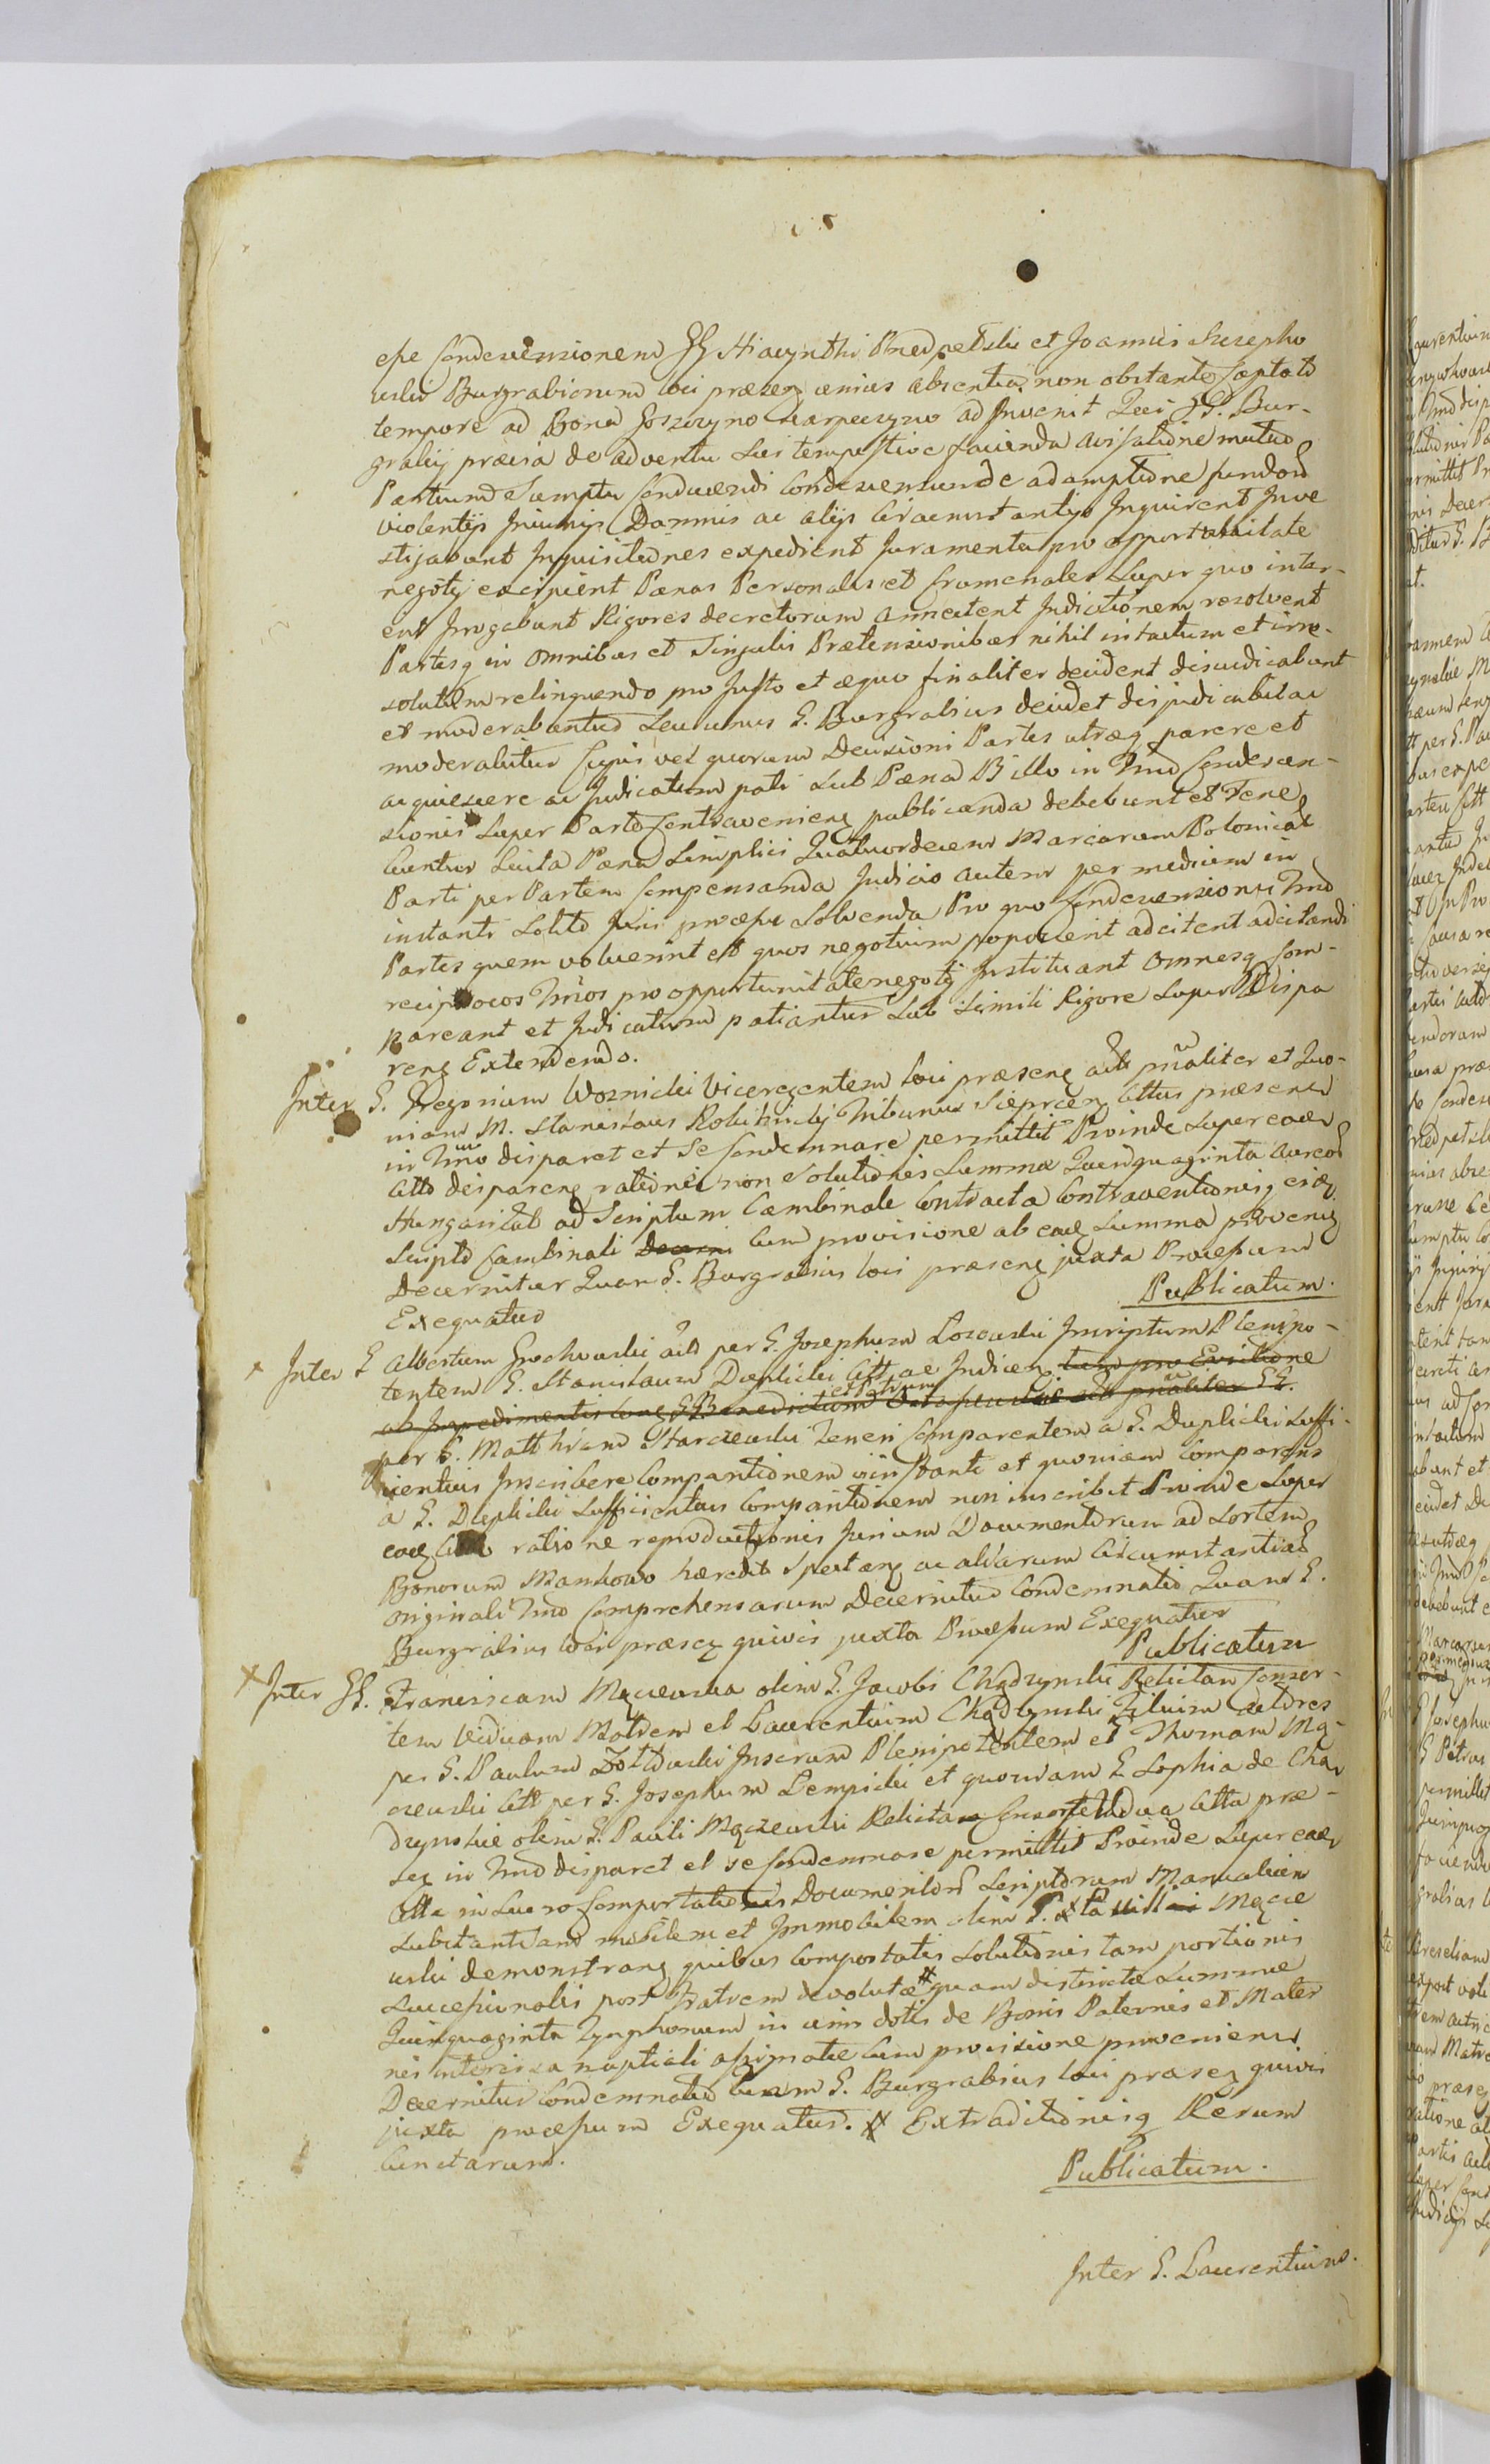 esse Condescensionem GG Hiacynthi Przedpełski et Joannis Szczepko
wski Burgrabiorum loci præseñ unius absentia non obstante Captato
tempore ad Bona Goszczyno Karpeczyno ad Invenit Qui GG. Bur-
grabij prævia de adventu Sui tempestive facienda avisatione mutuo
Partium Sumptu Conducendi Condescensum de ademptione fundor
violentijs Injurijs Damnis ac alijs Circumstantijs Inquirent Inve
stigabunt Inquisitiones expedient Juramenta pro opportunitate
negotij excipient Pænas Personales et Crumenales Super quo inter-
erit Irrogabunt Rigores decretorum annectent Indictionem resolvent
Partesq in Omnibus et Singulis Prætensionibus nihil intactum et irre-
solutum relinquendo pro Justo et æquo finaliter decident dijudicabunt
et moderabuntur Seu unus G. Burgrabius decidet dijudicabit ac
moderabitur Cujus vel quorum Decisioni Partes utræq parere et
acquiescere ac Judicatum pati Sub Pæna Billo in Tno Condescen-
sionis Super Parte Contraveniens publicanda debebunt et Tene
buntur Luita Pæna Simplici Quatuordecem Marcarum Polonical
Parti per Partem Compensanda Judicio autem per medium in
instanti Solito Juris processu Solvenda Pro quo Condescensionis Tno
Partes quem voluerint et quos negotium poposcerit adcitent adcitandi
reciprocos Tnos pro opportunitate negotij Instituant Omnesq Com-
pareant et Judicatum patiantur Sub Simili Rigore Super Dispa
rens Extendendo.
Inter G. Gregorium Woznicki Viceregentem loci præsens act pnaliter et Quo-
niam M. Stanislaus Rokitnicki Tribunus Cittus præsens
in Tno disparet et Se Condemnare permittit Proinde Super eaõ
Citto disparens rationi non Solutionis Summæ Quinquaginta aureor
Hungarical ad Scriptum Cambinale Contracta Contraventionisq eidẽ
Scripto Cambinali Decerni Cum provisione ab eaq Summa proveneñ
Decernitur Quam G. Burgrabius loci præsens juxta Processum
Exequatur
Publicatum.
× Inter G Albertum Grochowski act per G. Josephum Lozowski Inscriptum Plenipo-
tentem G. Stanislaum Duplicki Citt ac Judicẽ tum pro Evictione
ab Impedimentis pnaliter GG.
per G. Matthiam Starczewski Teneri Comparentem a G. Duplicki Suffi-
cientius Inscribere Comparitionem instanti et quoniam Comparens
a G. Duplicki Sufficientius Comparitionem non inscribit Proinde Super
eaq Citto ratione reproductionis Jurium Documentorum ad Sortem
Bonorum Mankowo hæredit Spectañ ac aliarum Circumstantiar
Originali Tno Comprehensarum Decernitur Condemnatio Quam G.
Burgrabius loci præseñ quivis juxta Processum Exequatur
Publicatum
× Inter GG. Franciscam Mączewska olim G. Jacobi Chądzynski Relictam Consor-
tem Viduam Matrem et Laurentium Chądzynski Filium actores
per G. Paulum Żołtowski Inscrum Plenipotentem et G Thomam Mą-
czewski Citt per G. Josephum Lempicki et quoniam G Sophia de Chą
dzynskie olim G. Pauli Mączewski Relicta Consorte Vidua Citta præ-
señ in Tno disparet et se Condemnare permittit Proinde Super eaq
Citta in Suo ro Comportationis Documentor Scriptorum Manualium
Substantiam mobilem et Immobilem olim G. Pauli Mącze
wski demonstrañ quibus Comportatis Solutionis tam portionis
Successionalis post Fratrem devolutæ # quam distinctæ Summæ
Quinquaginta Tynphonum in vim dotis de Bonis Paternis et Mater
nis intercisa nuptiali assignatæ Cum provisione proveniens
Decernitur Condemnatio Quam G. Burgrabius loci præseñ quivis
juxta processum Exequatur. # Extraditionisq Rerum
Cunctarum.
Publicatum.
Inter G. Laurentium.